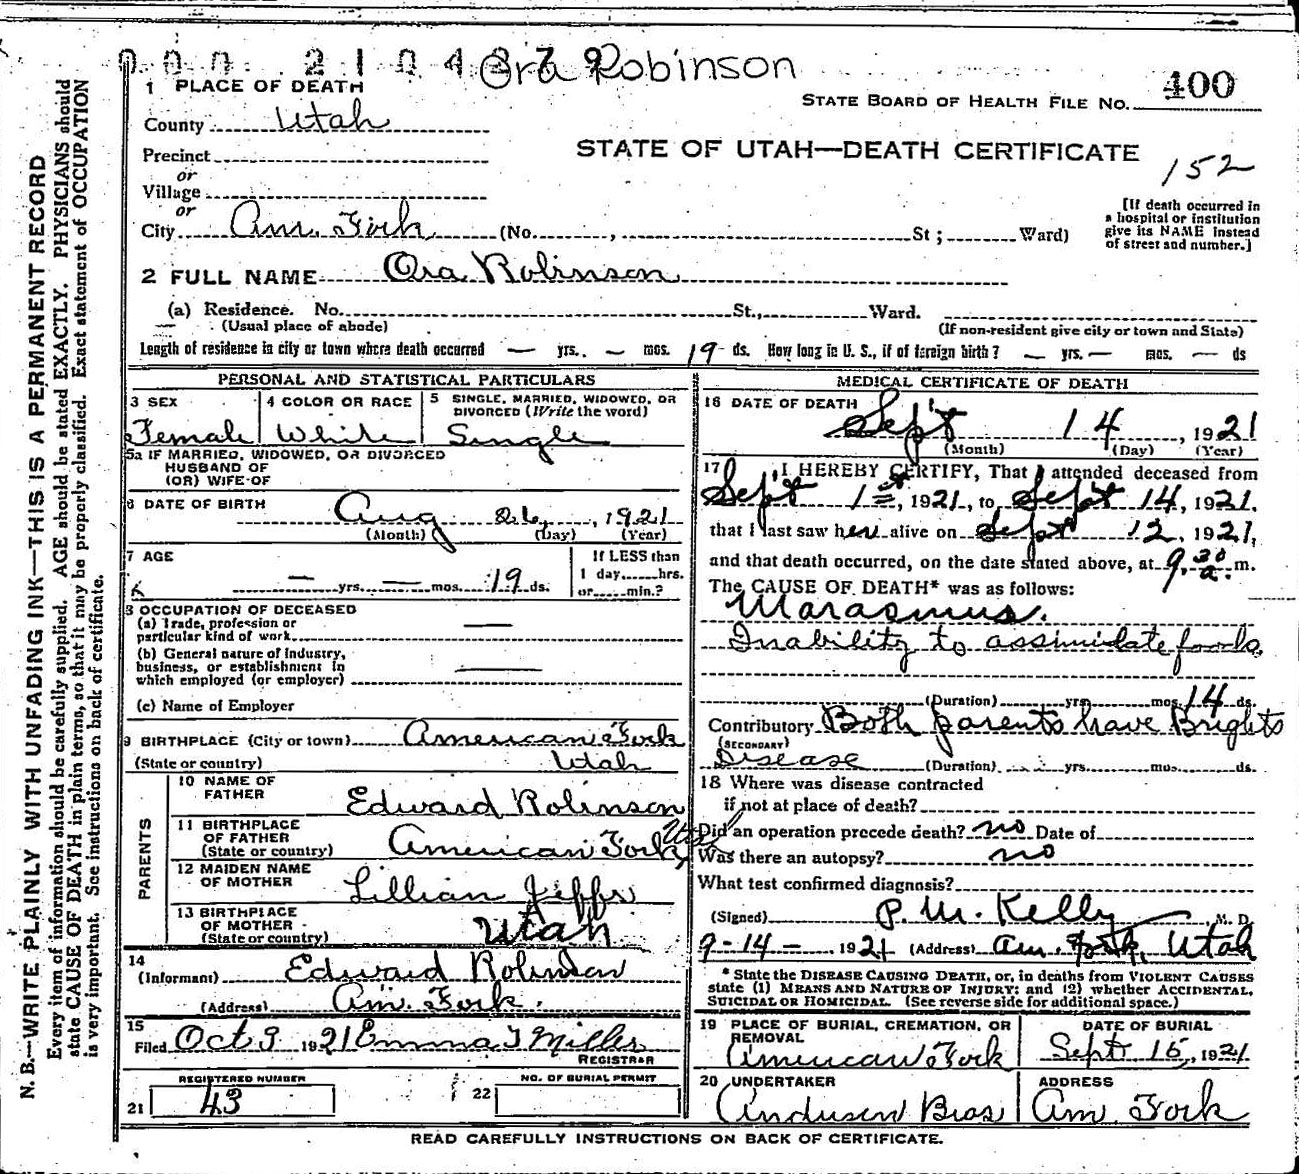 000 210479 Ora Robinson
1 PLACE OF DEATH
STATE BOARD OF HEALTH FILE NO. 400
County Utah
STATE OF UTAH—DEATH CERTIFICATE
152
Precinct
or
Village
or
City Am. Fork (No. , St ; Ward)
[If death occurred in
a hospital or institution
give its NAME instead
of street and number.]
2 FULL NAME Ora Robinson
(a) Residence. No. St., Ward.
(Usual place of abode) (If non-resident give city or town and State)
Length of residence in city or town where death occurred — yrs. — mos. 19 ds. How long in U. S., if of foreign birth? — yrs. — mos. — ds
PERSONAL AND STATISTICAL PARTICULARS
3 SEX 4 COLOR OR RACE 5 SINGLE, MARRIED, WIDOWED, OR
DIVORCED (Write the word)
Female White Single
5a IF MARRIED, WIDOWED, OR DIVORCED
HUSBAND OF
(OR) WIFE OF
6 DATE OF BIRTH Aug 26, 1921
(Month) (Day) (Year)
7 AGE If LESS than
— yrs. — mos. 19 ds. 1 day......hrs.
or......min.?
8 OCCUPATION OF DECEASED
(a) Trade, profession or
particular kind of work —
(b) General nature of industry,
business, or establishment in
which employed (or employer) —
(c) Name of Employer
9 BIRTHPLACE (City or town) American Fork
(State or country) Utah
PARENTS
10 NAME OF
FATHER Edward Robinson
11 BIRTHPLACE
OF FATHER
(State or country) American Fork Utah
12 MAIDEN NAME
OF MOTHER Lillian Jeffs
13 BIRTHPLACE
OF MOTHER
(State or country) Utah
14
(Informant) Edward Robinson
(Address) Am. Fork.
15
Filed Oct 9 1921 Emma T Miller
REGISTRAR
REGISTERED NUMBER NO. OF BURIAL PERMIT
21 43 22
MEDICAL CERTIFICATE OF DEATH
16 DATE OF DEATH Sept 14, 1921
(Month) (Day) (Year)
17 I HEREBY CERTIFY, That I attended deceased from
Sept 1st, 1921, to Sept 14, 1921,
that I last saw her alive on Sept 12, 1921,
and that death occurred, on the date stated above, at 9.30 a. m.
The CAUSE OF DEATH* was as follows:
Marasmus.
Inability to assimilate foods.
(Duration) yrs. mos. 14 ds.
Contributory Both parents have Brights
(SECONDARY)
Disease (Duration) yrs. mos. ds.
18 Where was disease contracted
if not at place of death?
Did an operation precede death? no Date of
Was there an autopsy? no
What test confirmed diagnosis?
(Signed) P. M. Kelly M. D.
9-14- 1921 (Address) Am. Fork, Utah
* State the DISEASE CAUSING DEATH, or, in deaths from VIOLENT CAUSES
state (1) MEANS AND NATURE OF INJURY; and (2) whether ACCIDENTAL,
SUICIDAL OR HOMICIDAL. (See reverse side for additional space.)
19 PLACE OF BURIAL, CREMATION, OR
REMOVAL DATE OF BURIAL
American Fork Sept 15, 1921
20 UNDERTAKER ADDRESS
Anderson Bros Am. Fork
READ CAREFULLY INSTRUCTIONS ON BACK OF CERTIFICATE.
N. B.—WRITE PLAINLY WITH UNFADING INK—THIS IS A PERMANENT RECORD
Every item of information should be carefully supplied. AGE should be stated EXACTLY. PHYSICIANS should
state CAUSE OF DEATH in plain terms, so that it may be properly classified. Exact statement of OCCUPATION
is very important. See instructions on back of certificate.